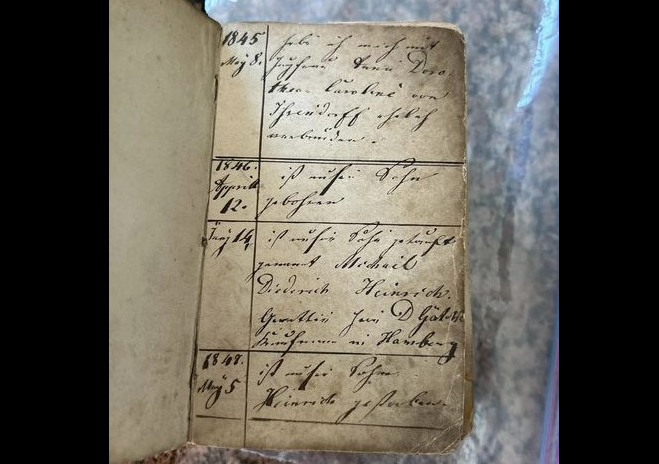 1845 habe ich mich mit
May 8. Jungfrau Anna Doro,
thea Caroline von
Threndorff ehelich
verbunden.
1846. ist unser Sohn
Appriell gebohren
12.
Juny 14, ist unser Sohn getauft
genannt Michael
Diederich Heinrich.
Herr D
Kaufmann in Hamburg
1848. ist unser Sohn
May 5 Heinrich gestorben.